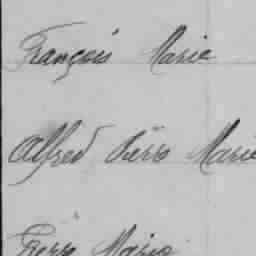 François Marie
Alfred Pierre Marie
Pierre Marie